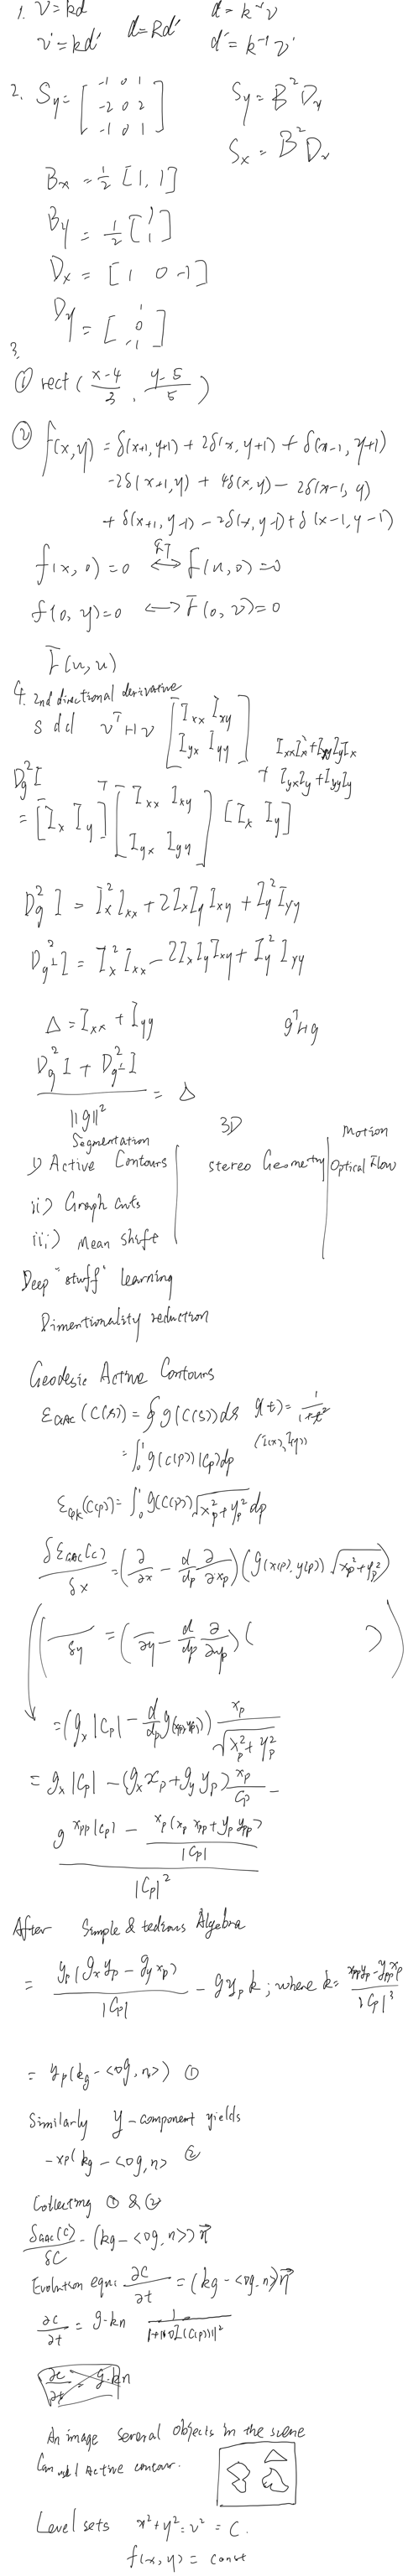 1. v=kd
v'=kd'
d=Rd'
d=k⁻¹v
d'=k⁻¹v'
2. Sy= [ -1 0 1
-2 0 2
-1 0 1 ]
Sy=B²Dy
Sx=B²Dx
Bx = 1/2 [1, 1]
By = 1/2 [1 1]
Dx = [1 0 -1]
Dy = [1 0 -1]
3.
① rect ( x-4/3 , y-5/5 )
② f(x,y) = δ(x+1, y+1) + 2δ(x, y+1) + δ(x-1, y+1)
-2δ(x+1,y) + 4δ(x,y) - 2δ(x-1, y)
+ δ(x+1, y-1) -2δ(x, y-1)+ δ(x-1, y-1)
f(x, 0)=0 ⟷ F(u, 0)=0
f(0, y)=0 ⟷ F(0, v)=0
F(u, u)
4. 2nd directional derivative
s d d vᵀHv [ Ixx Ixy
Iyx Iyy ]
Dg²I
= [Ix Iy]ᵀ [ Ixx Ixy
Iyx Iyy ] [Ix Iy]
Dg² I = Ix²Ixx + 2IxIyIxy + Iy²Iyy
Dg⊥² I = Ix²Ixx - 2IxIyIxy + Iy²Iyy
Δ = Ixx + Iyy
gᵀHg
Dg²I + Dg⊥²I / ||g||² = Δ
Segmentation
3D
Motion
i) Active Contours
stereo Geometry
Optical Flow
ii) Graph cuts
iii) Mean shift
Deep "stuff" learning
Dimentionality reduction
Geodesic Active Contours
εGAC (C(s)) = ∮ g(C(s))ds g(t) = 1/1+t²
= ∫₀¹ g(C(p)) |Cp| dp
(C(p)) = ∫₀¹ g(C(p)) √xp²+yp² dp
δεGAC(C)/δx = (∂/∂x - d/dp ∂/∂xp) (g(x(p), y(p)) √xp²+yp²)
( /δy = ( /∂y - d/dp ∂/∂yp) ( ) )
= (gx |Cp| - d/dp g(x(p), y(p))) xp/√xp²+yp²
= gx |Cp| - (gx xp + gy yp) xp/Cp -
g xpp |Cp| - xp (xp xpp + yp ypp)/|Cp| / |Cp|²
After Simple & tedious Algebra
= yp (gx yp - gy xp)/|Cp| - g yp k ; where k = xpp yp - ypp xp/|Cp|³
= yp (kg - <∇g, n>) ①
Similarly y-component yields
-xp( kg - <∇g, n> ②
Collecting ① & ②
δGAC(C)/δC - (kg - <∇g, n>) n⃗
Evolution equn: ∂C/∂t = (kg - <∇g, n>) n⃗
∂C/∂t = g·kn 1/1+||∇I(C(p))||²
∂C/∂t = g·kn
An image several objects in the scene
Can Active contour.
Level sets x²+y²=v² = C.
f(x, y) = const